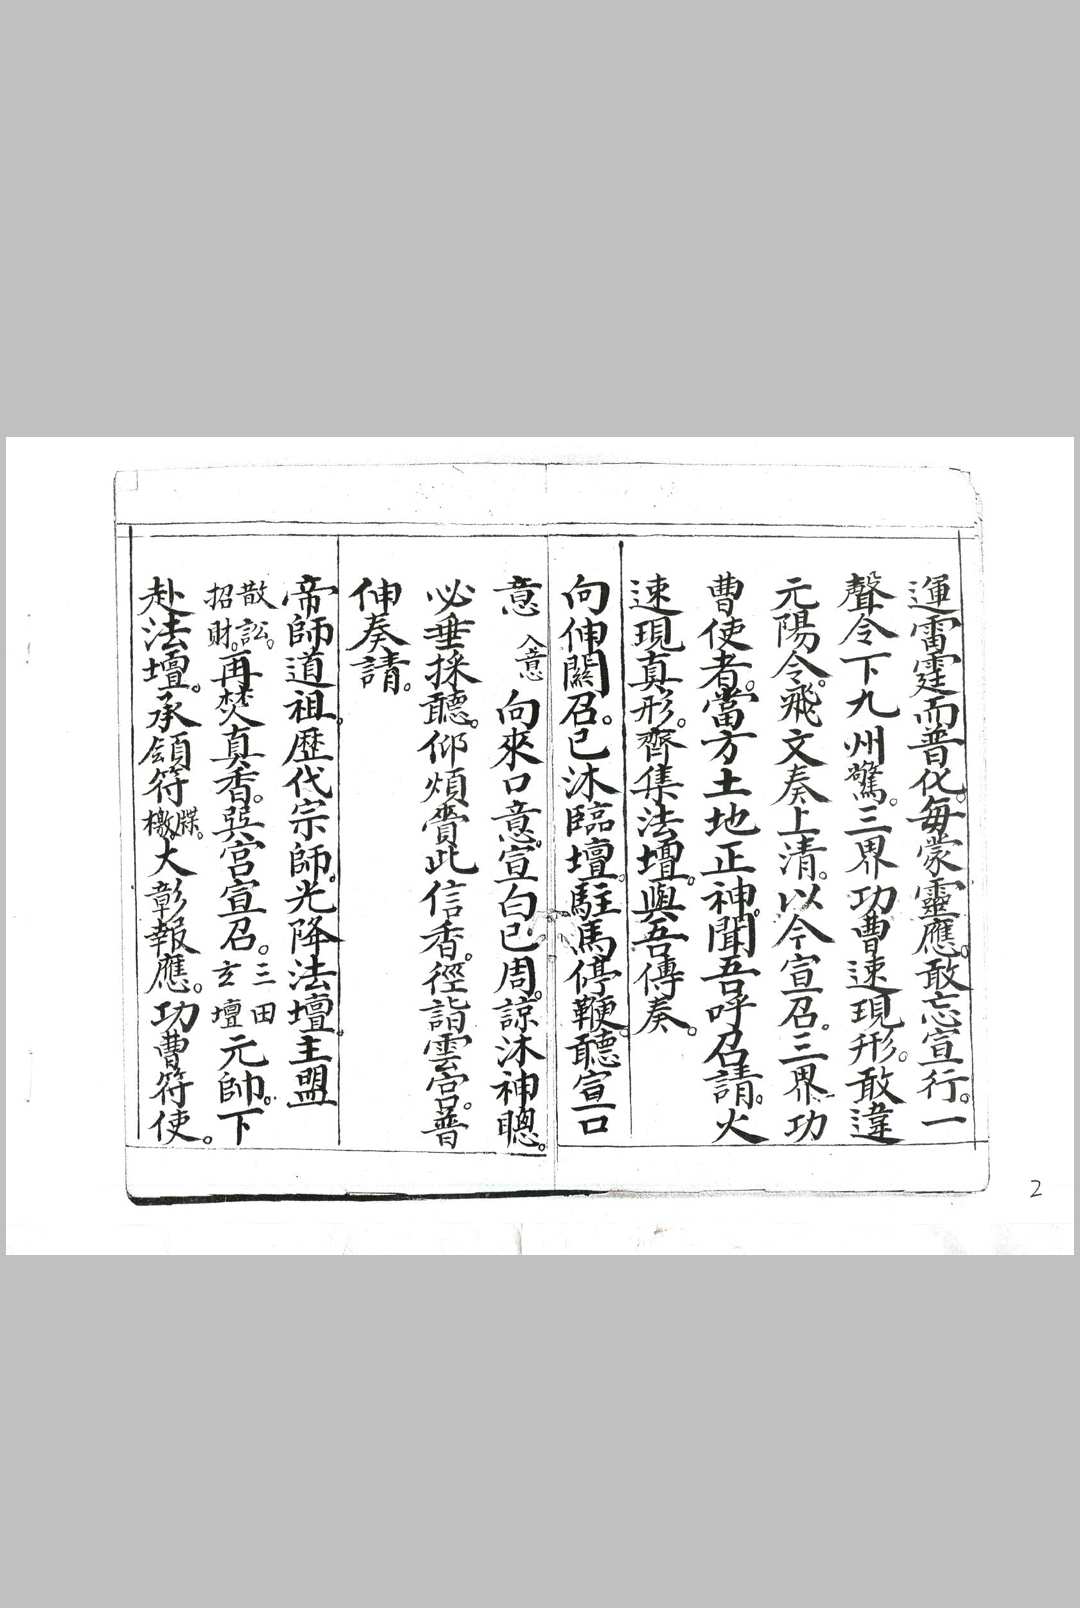 運雷霆而普化。毎蒙靈應。敢忘宣行。一
聲令下九州驚。三界功曹速現形。敢違
元陽令。飛文奏上清。以今宣召。三界功
曹使者。當方土地正神。聞吾呼召請。火
速現真形。齊集法壇。與吾傳奏。
向伸關召。已沐臨壇。駐馬停鞭。聽宣口
意 入意 向來口意。宣白已周。諒沐神聰。
必垂採聽。仰煩賫此信香。徑詣雲宮。普
伸奏請。
帝師道祖。歷代宗師。光降法壇。主盟
散訟。招財。再焚真香。巽宮宣召。三田玄壇元帥。下
赴法壇。承領符牒。檄。大彰報應。功曹符使。
2